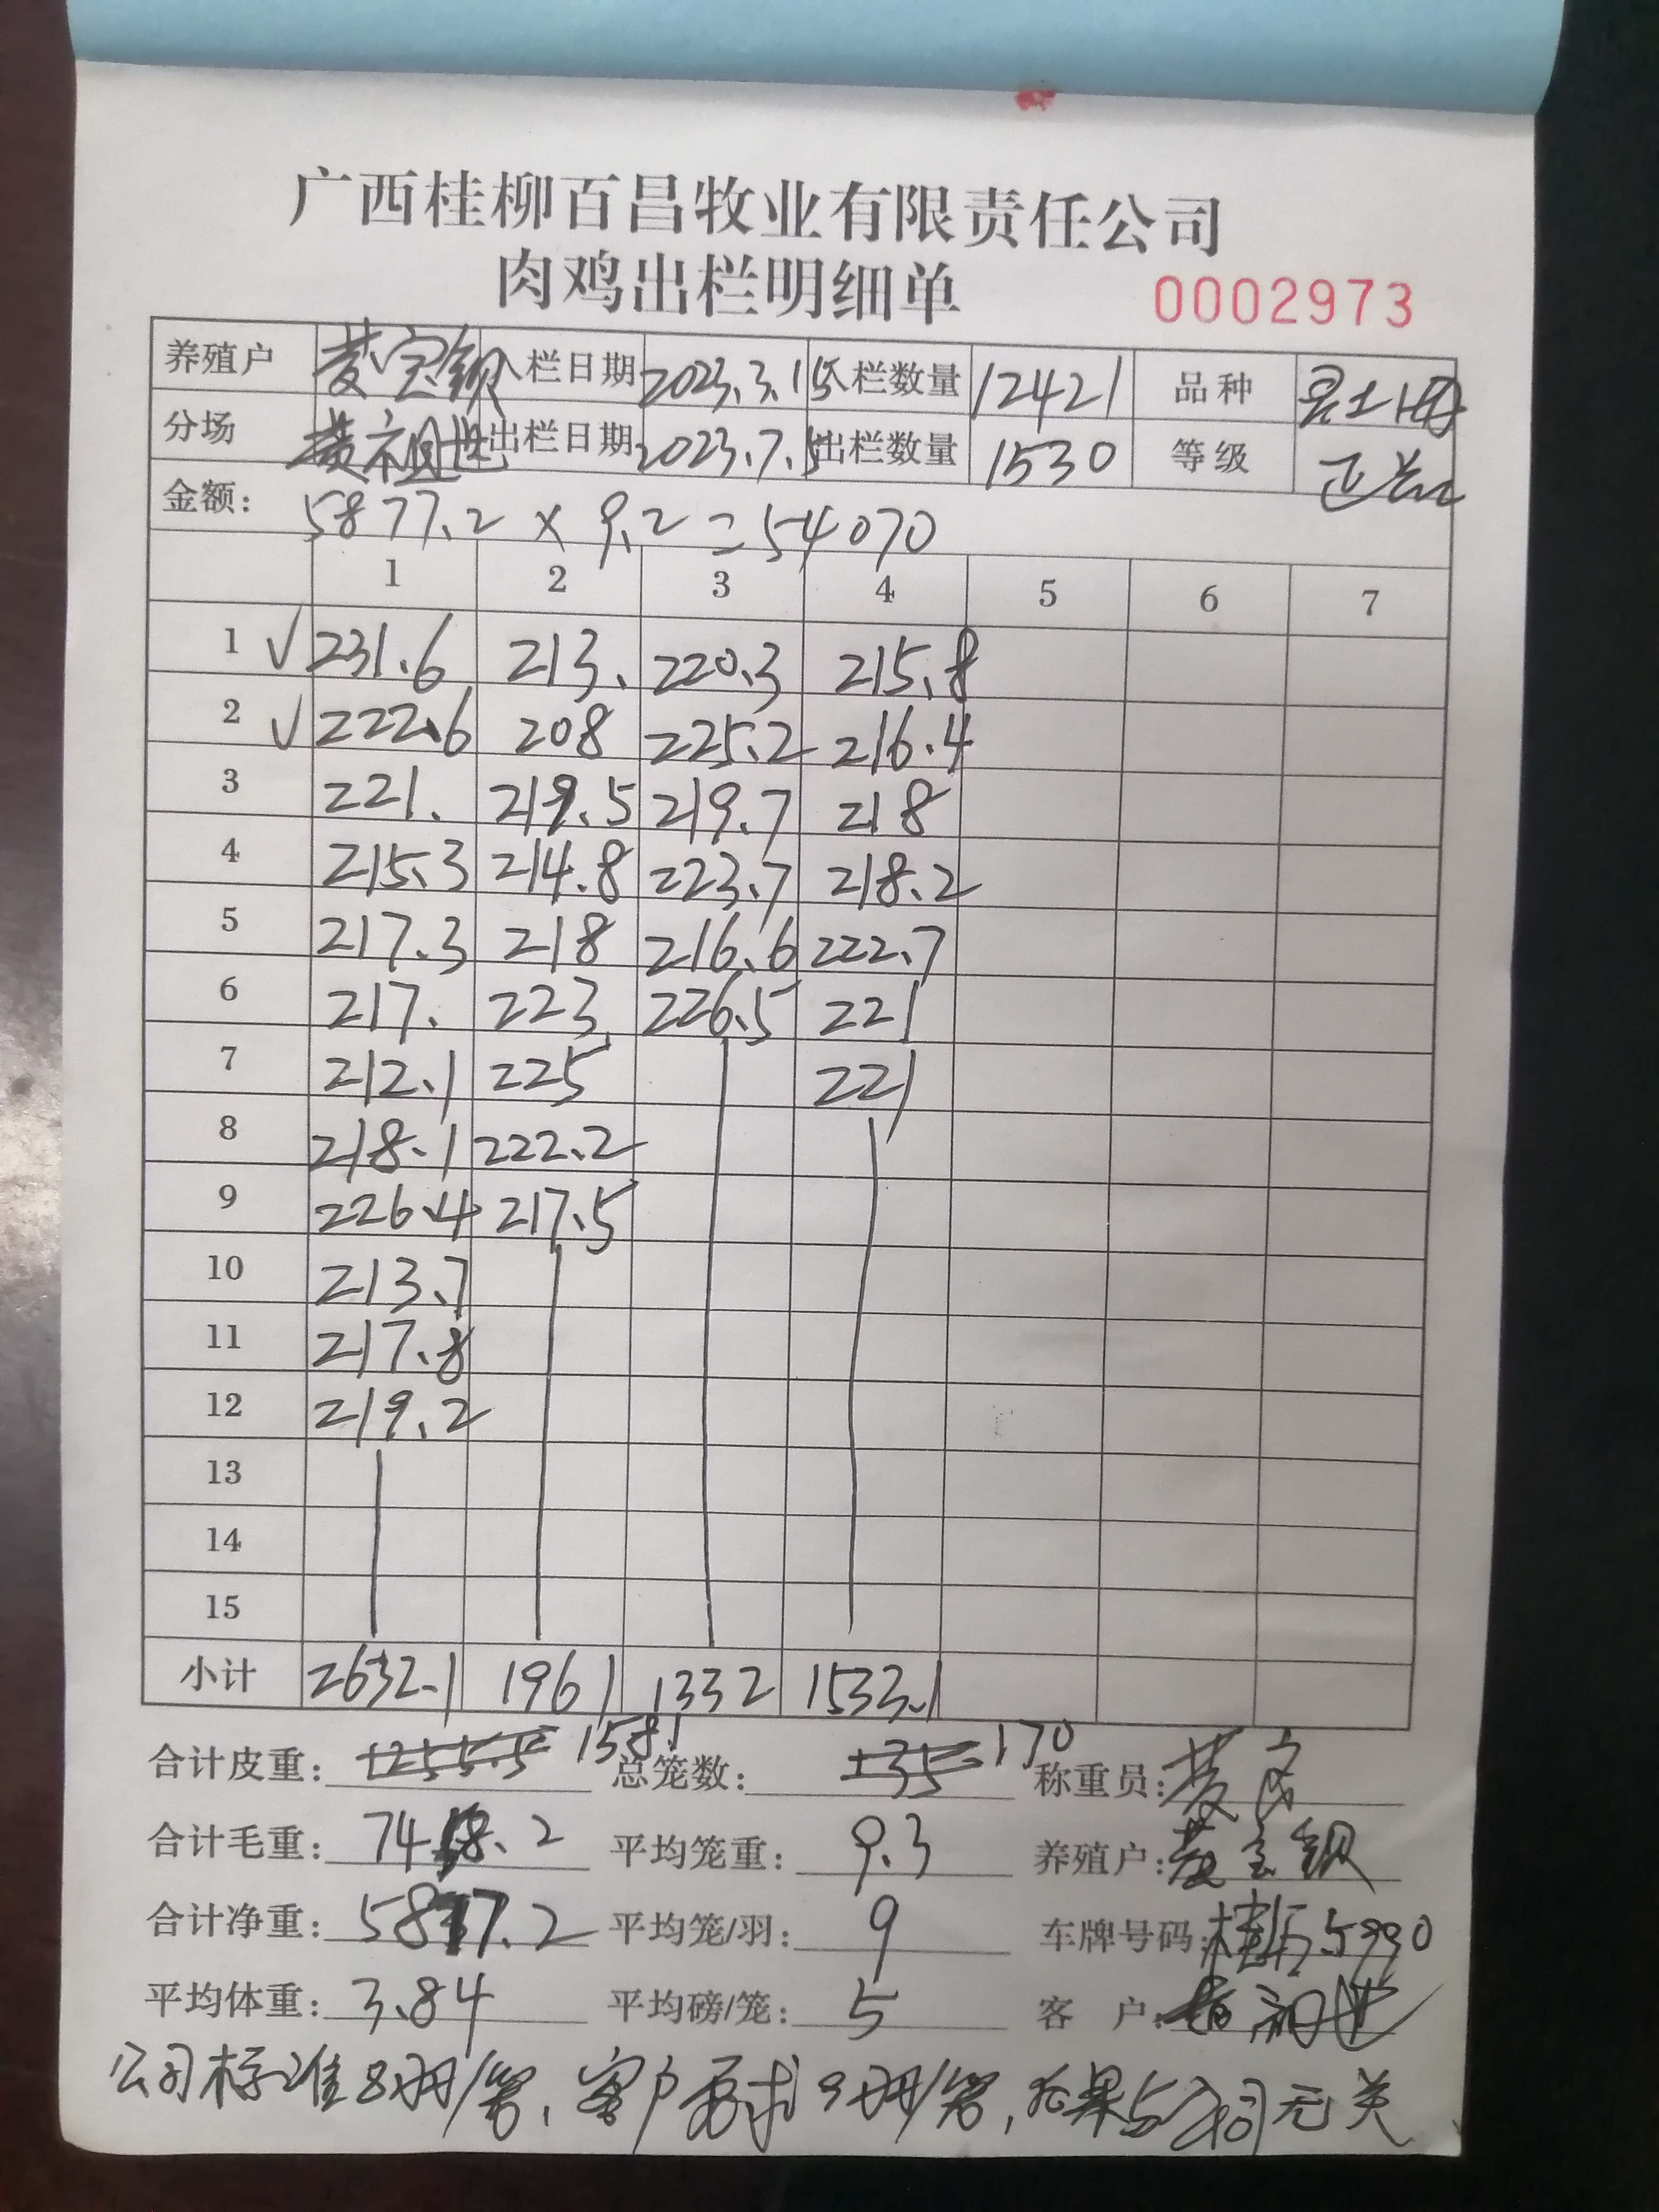 广西桂柳百昌牧业有限责任公司
肉鸡出栏明细单 0002973
养殖户 黄宝银 入栏日期 2023.3.15 入栏数量 12421 品种
分场 黄祖进 出栏日期 2023.7.15 出栏数量 1530 等级 正品
金额: 5877.2 × 9.2 = 54070
1 2 3 4 5 6 7
1 √ 231.6 213. 220.3 215.8
2 √ 222.6 208 225.2 216.4
3 221. 219.5 219.7 218
4 215.3 214.8 223.7 218.2
5 217.3 218 216.6 222.7
6 217. 223 226.5 221
7 212.1 225 221
8 218.1 222.2
9 226.4 217.5
10 213.7
11 217.8
12 219.2
13
14
15
小计 2632.1 1961 1332 1533.1
合计皮重: 1255.5 1581 总笼数: 135 170 称重员:
合计毛重: 7458.2 平均笼重: 9.3 养殖户: 黄宝银
合计净重: 5877.2 平均笼/羽: 9 车牌号码: 5990
平均体重: 3.84 平均磅/笼: 5 客 户:
公司标准8羽/笼、客户要求9羽/笼,后果与公司无关